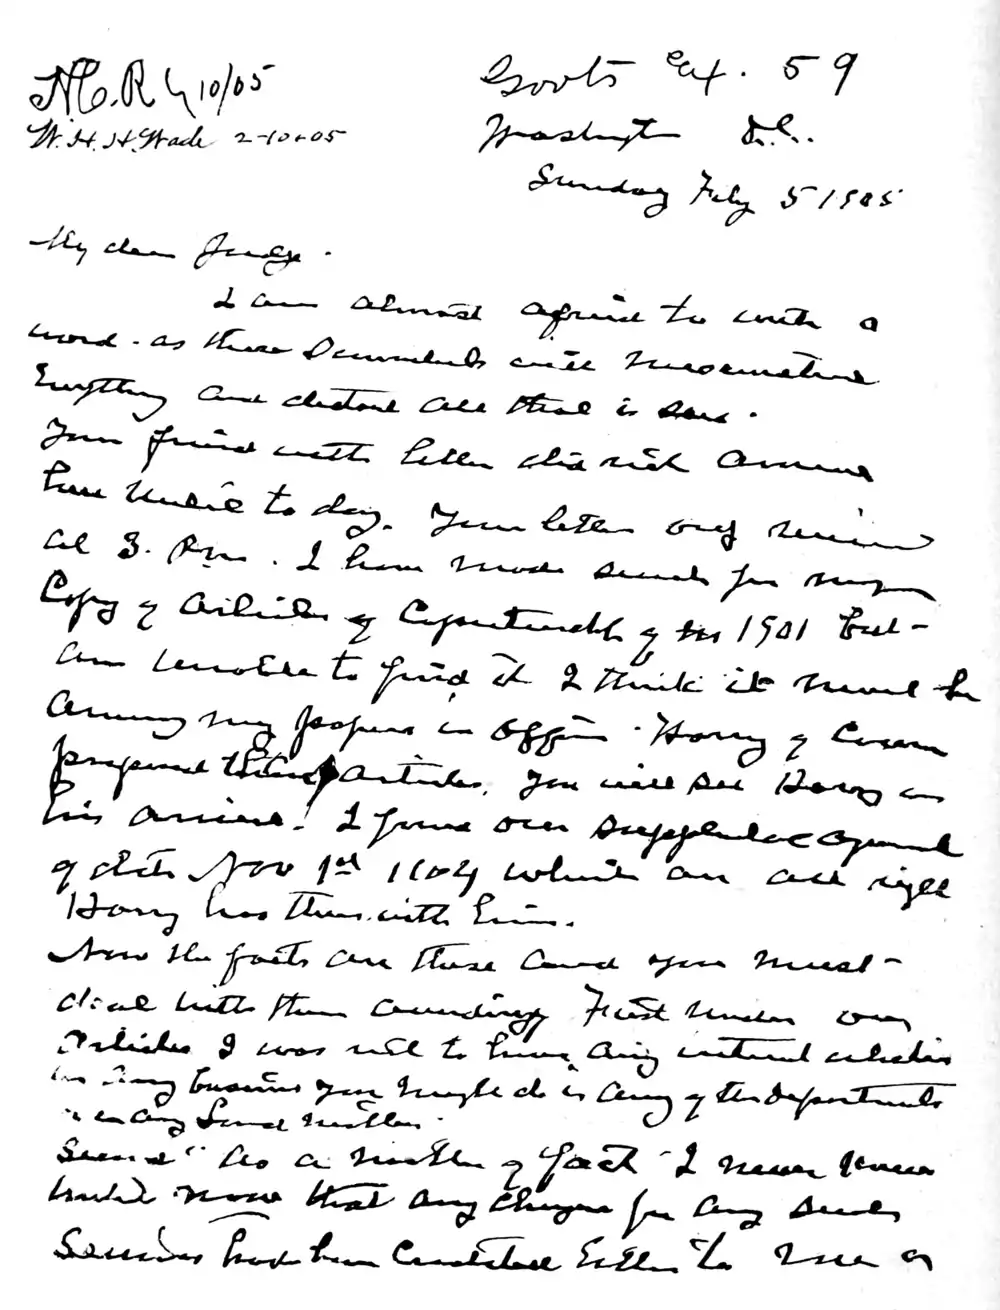 Govts Ex. 59
H.C.R 2/10/05
W.H.H. Wade 2-10-05
Washington D.C.
Sunday Feby 5 1905
My dear Judge.
I am almost afraid to write a
word - as these Scoundrels will misconstrue
Everything and distort all that is said.
Your friend with letter did not arrive
here until to day. Your letter only received
at 3. P.m. I have made search for my
Copy of Articles of Copartnership of 1901 but
am unable to find it I think it must be
among my papers in office. Harry
prepared articles, you will see Harry on
his arrival! I found our supplemental agreement
of date Nov 1st 1904 which are all right
Harry has them with him.
Now the facts are these and you must
deal with them accordingly First under our
Articles I was not to have any interest whatever
in any business you might do in any of the Departments
in any Land matter.
Second" As a matter of fact I never knew
until now that any charges for any such
Services had been Credited Either to me or